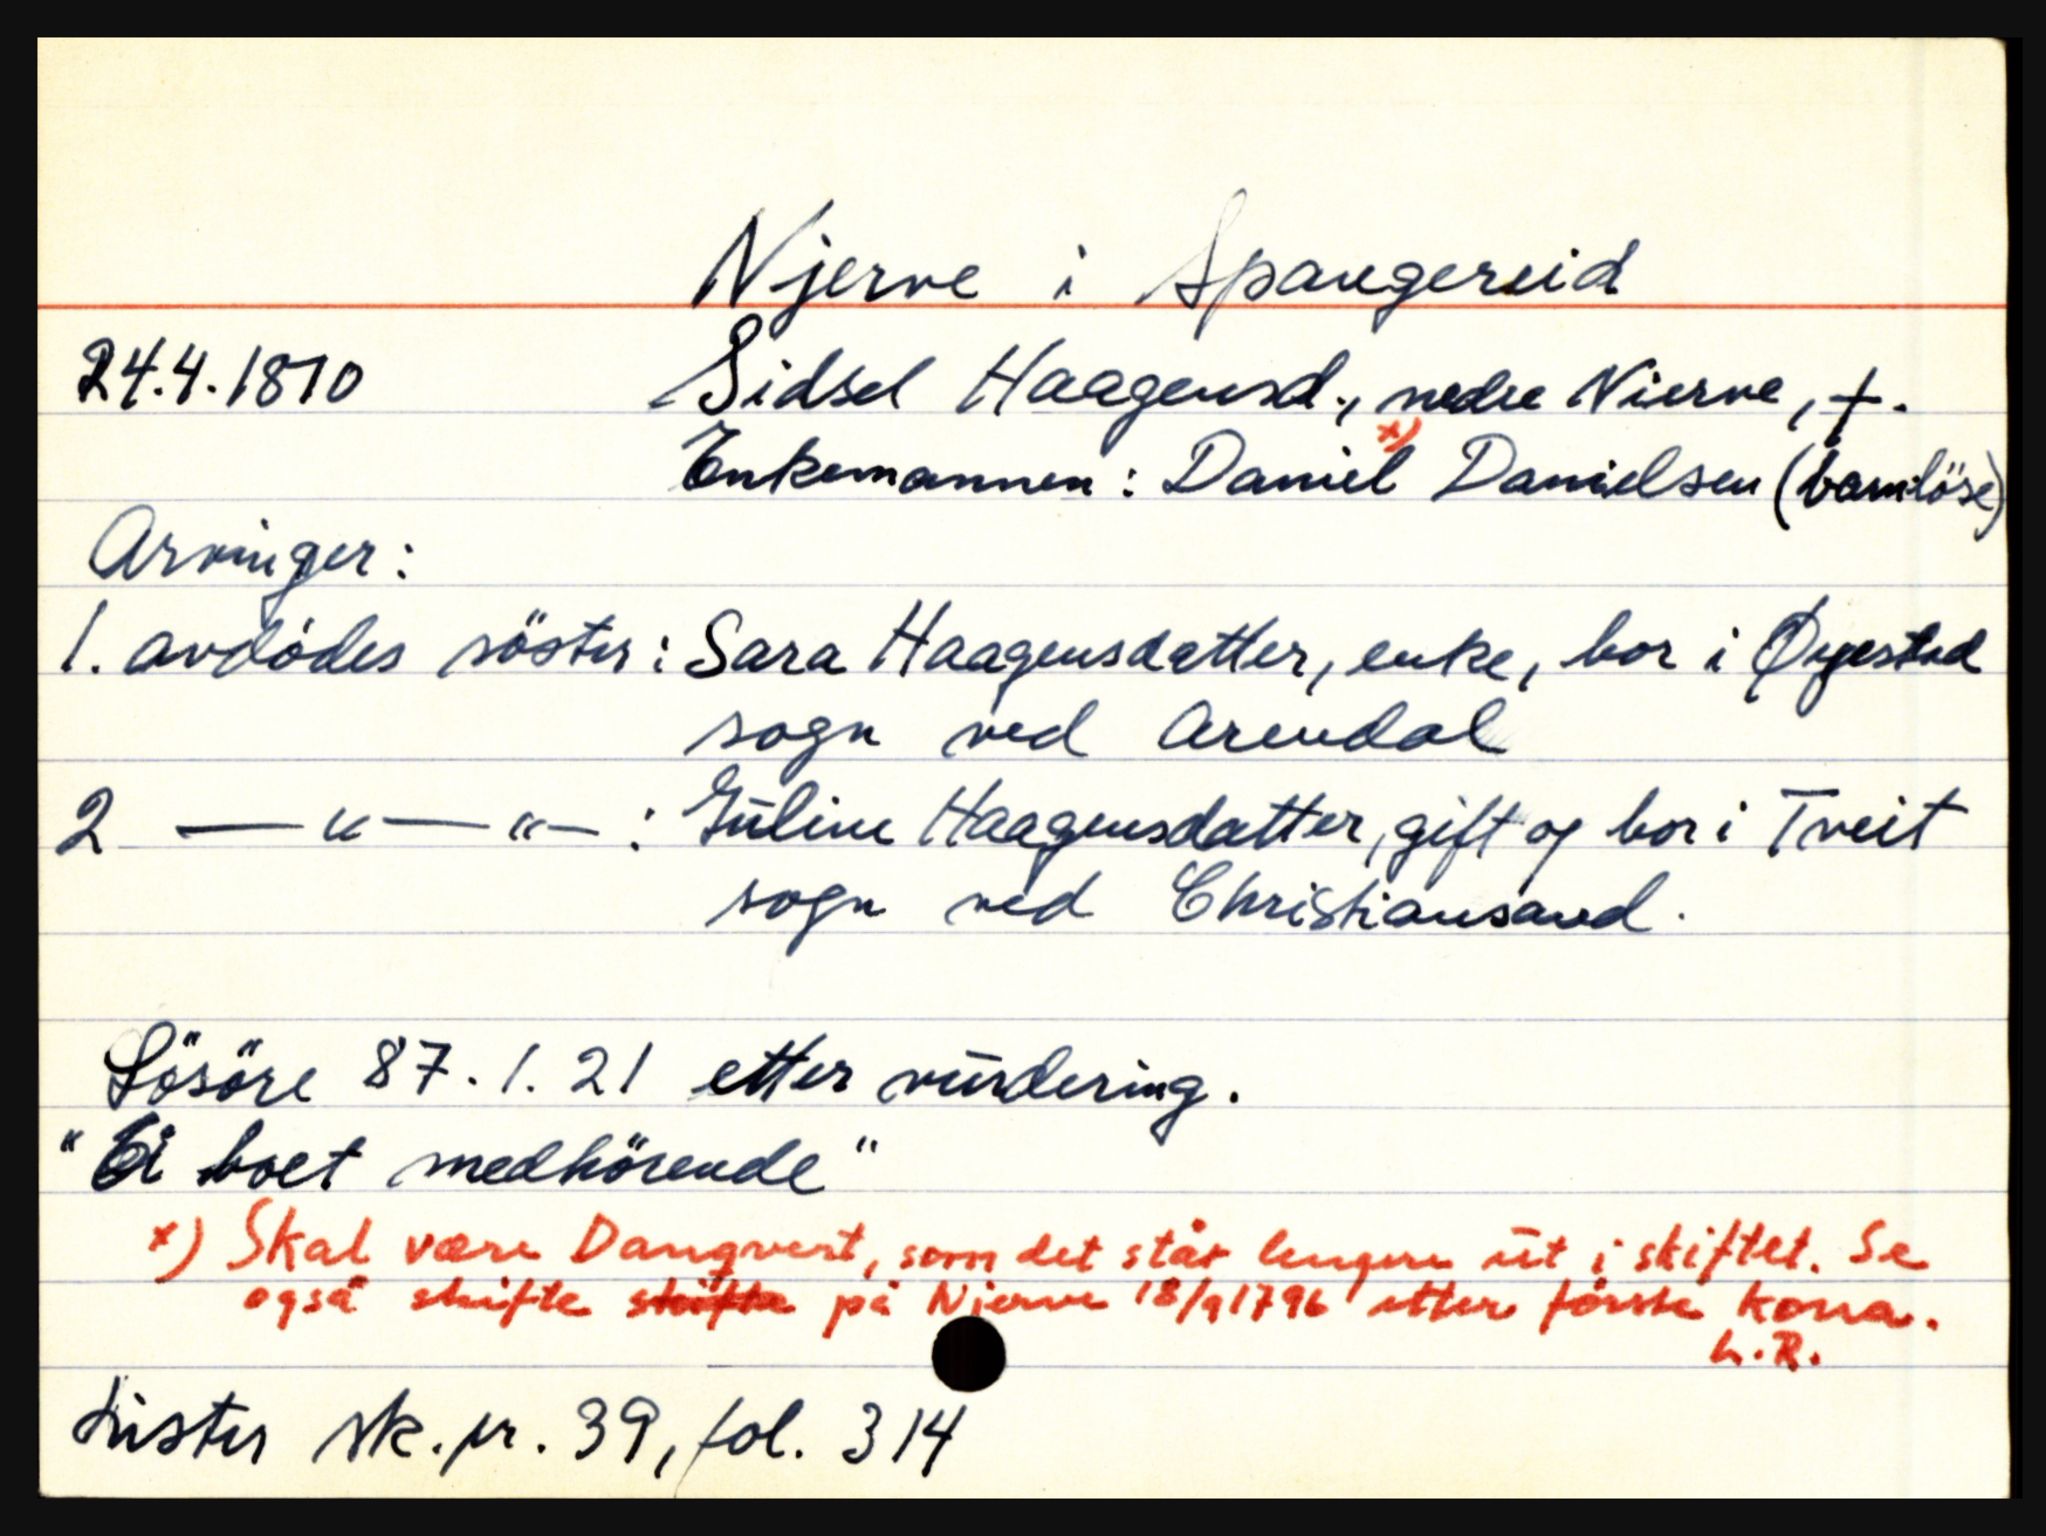 Njerve i Spangereid
24.4.1810 Sidsel Haagensd., nedre Nierve, †.
Enkemannen: Daniel x) Danielsen (barnlöse)
Arvinger:
1. avdödes söster: Sara Haagensdatter, enke, bor i Øyestad
sogn ved Arendal
2 — " — " — : Gūline Haagensdatter, gift og bor i Tveit
sogn ved Christiansand.
Lösöre 87.1.21 etter vūrdering.
"Ei boet medhörende"
x) Skal være Dangvert, som det står lengere ūt i skiftet. Se
også skifte skifte på Nierve 18/9 1796 etter förste kona.
L.R.
Lister sk.pr. 39, fol. 314